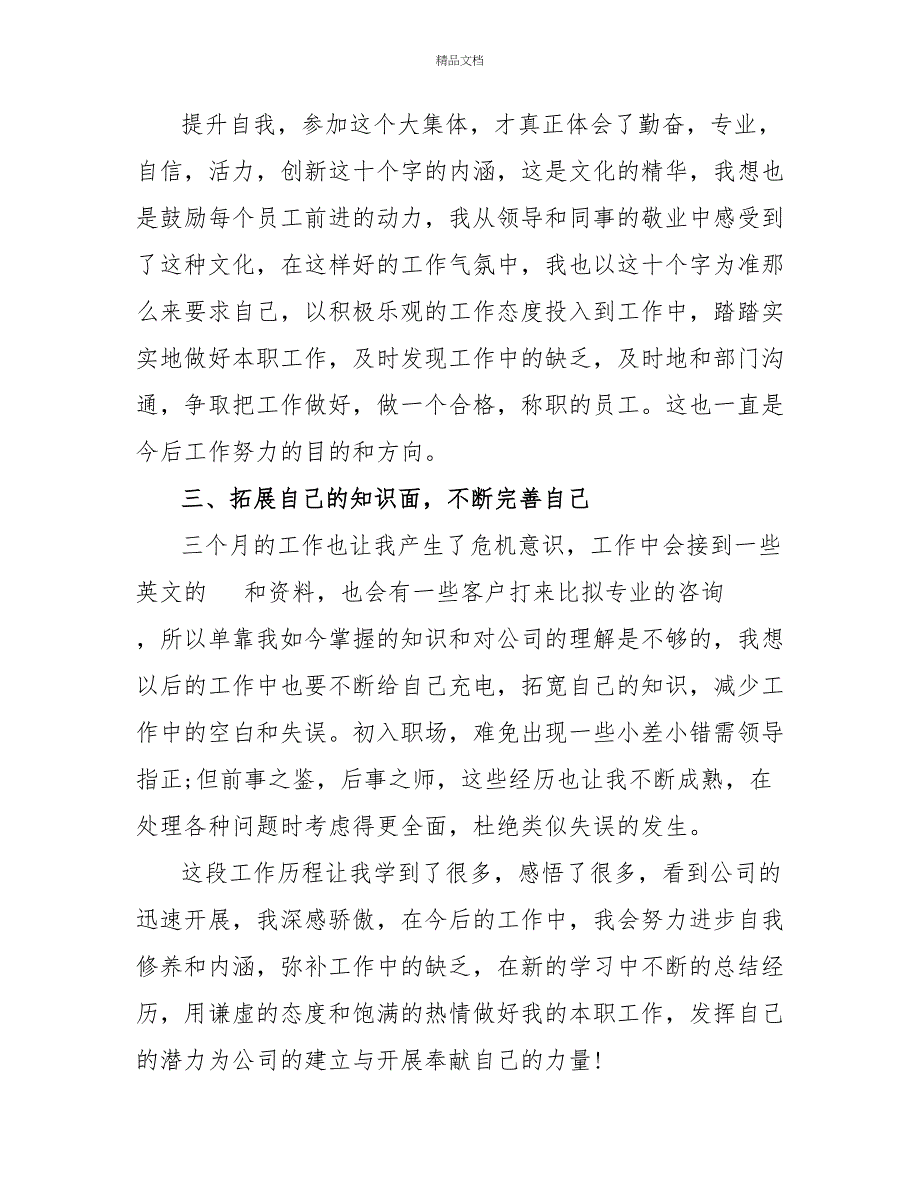 精品文档
提升自我，参加这个大集体，才真正体会了勤奋，专业，
自信，活力，创新这十个字的内涵，这是文化的精华，我想也
是鼓励每个员工前进的动力，我从领导和同事的敬业中感受到
了这种文化，在这样好的工作气氛中，我也以这十个字为准那
么来要求自己，以积极乐观的工作态度投入到工作中，踏踏实
实地做好本职工作，及时发现工作中的缺乏，及时地和部门沟
通，争取把工作做好，做一个合格，称职的员工。这也一直是
今后工作努力的目的和方向。
三、拓展自己的知识面，不断完善自己
三个月的工作也让我产生了危机意识，工作中会接到一些
英文的 和资料，也会有一些客户打来比拟专业的咨询
，所以单靠我如今掌握的知识和对公司的理解是不够的，我想
以后的工作中也要不断给自己充电，拓宽自己的知识，减少工
作中的空白和失误。初入职场，难免出现一些小差小错需领导
指正;但前事之鉴，后事之师，这些经历也让我不断成熟，在
处理各种问题时考虑得更全面，杜绝类似失误的发生。
这段工作历程让我学到了很多，感悟了很多，看到公司的
迅速开展，我深感骄傲，在今后的工作中，我会努力进步自我
修养和内涵，弥补工作中的缺乏，在新的学习中不断的总结经
历，用谦虚的态度和饱满的热情做好我的本职工作，发挥自己
的潜力为公司的建立与开展奉献自己的力量!